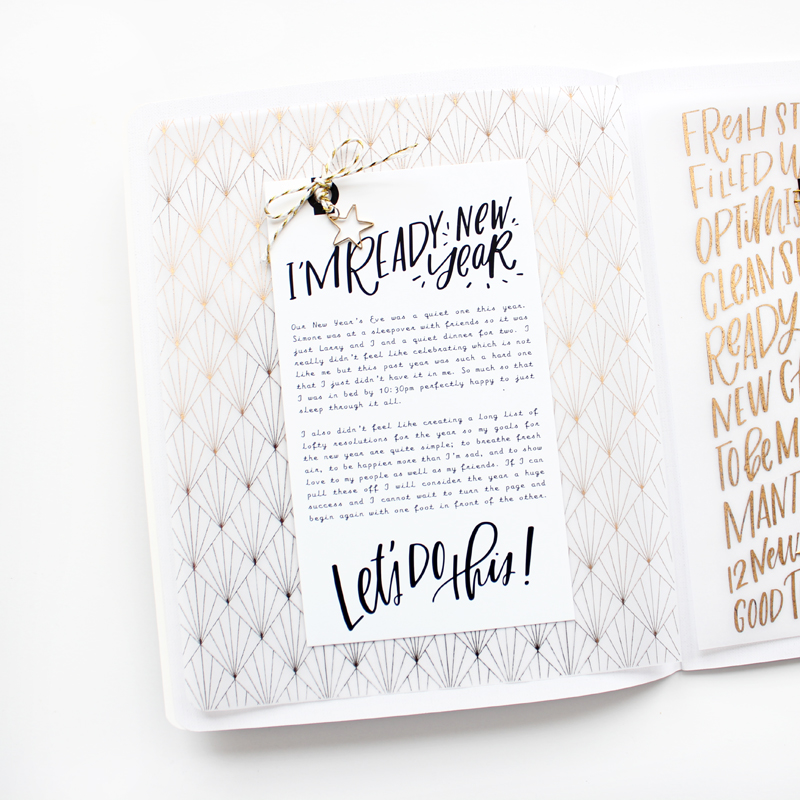 I'M READY, NEW
year
Our New Year's Eve was a quiet one this year.
Simone was at a sleepover with friends so it was
just Larry and I and a quiet dinner for two. I
really didn't feel like celebrating which is not
like me but this past year was such a hard one
that I just didn't have it in me. So much so that
I was in bed by 10:30pm perfectly happy to just
sleep through it all.
I also didn't feel like creating a long list of
lofty resolutions for the year so my goals for
the new year are quite simple; to breathe fresh
air, to be happier more than I'm sad, and to show
love to my people as well as my friends. If I can
pull these off I will consider the year a huge
success and I cannot wait to turn the page and
begin again with one foot in front of the other.
Let's DO this!
FResH ST
FILLED W
OPTIMIS
CLEAN S
READY
NEW C
TO Be M
MANT
12 NEW
GOOD T